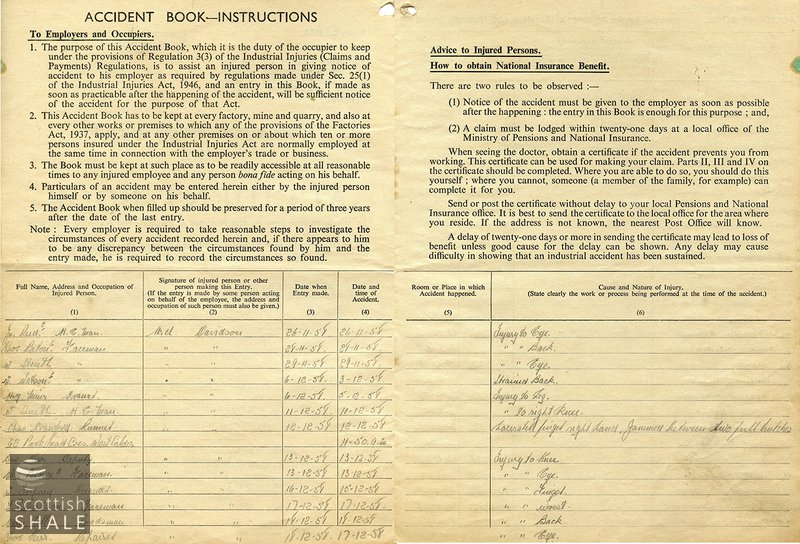 ACCIDENT BOOK—INSTRUCTIONS
To Employers and Occupiers.
1. The purpose of this Accident Book, which it is the duty of the occupier to keep
under the provisions of Regulation 3(3) of the Industrial Injuries (Claims and
Payments) Regulations, is to assist an injured person in giving notice of
accident to his employer as required by regulations made under Sec. 25(1)
of the Industrial Injuries Act, 1946, and an entry in this Book, if made as
soon as practicable after the happening of the accident, will be sufficient
notice of the accident for the purpose of that Act.
2. This Accident Book has to be kept at every factory, mine and quarry, and also at
every other works or premises to which any of the provisions of the Factories
Act, 1937, apply, and at any other premises on or about which ten or more
persons insured under the Industrial Injuries Act are normally employed at
the same time in connection with the employer's trade or business.
3. The Book must be kept at such place as to be readily accessible at all reasonable
times to any injured employee and any person bona fide acting on his behalf.
4. Particulars of an accident may be entered herein either by the injured person
himself or by someone on his behalf.
5. The Accident Book when filled up should be preserved for a period of three years
after the date of the last entry.
Note : Every employer is required to take reasonable steps to investigate the
circumstances of every accident recorded herein and, if there appears to him
to be any discrepancy between the circumstances found by him and the
entry made, he is required to record the circumstances so found.
Advice to Injured Persons.
How to obtain National Insurance Benefit.
There are two rules to be observed :—
(1) Notice of the accident must be given to the employer as soon as possible
after the happening : the entry in this Book is enough for this purpose ; and,
(2) A claim must be lodged within twenty-one days at a local office of the
Ministry of Pensions and National Insurance.
When seeing the doctor, obtain a certificate if the accident prevents you from
working. This certificate can be used for making your claim. Parts II, III and IV on
the certificate should be completed. Where you are able to do so, you should do this
yourself ; where you cannot, someone (a member of the family, for example) can
complete it for you.
Send or post the certificate without delay to your local Pensions and National
Insurance office. It is best to send the certificate to the local office for the area where
you reside. If the address is not known, the nearest Post Office will know.
A delay of twenty-one days or more in sending the certificate may lead to loss of
benefit unless good cause for the delay can be shown. Any delay may cause
difficulty in showing that an industrial accident has been sustained.
Full Name, Address and Occupation of
Injured Person.
(1)
Signature of injured person or other
person making this Entry.
(If the entry is made by some person acting
on behalf of the employee, the address and
occupation of such person must also be given.)
(2)
Date when
Entry made.
(3)
Date and
time of
Accident.
(4)
Room or Place in which
Accident happened.
(5)
Cause and Nature of Injury.
(State clearly the work or process being performed at the time of the accident.)
(6)
Davidson 26-11-58 26-11-58 Injury to Eye.
Faceman " " " " Back.
" " " " " Eye.
" " 6-12-58 3-12-58 Strained Back.
" " 6-12-58 5-12-58 Injury to Leg.
Smith " " 11-12-58 11-12-58 " to right Knee.
Chas Crawford " " 12-12-58 12-12-58 finger right hand, Jammed between two full hutches
" " 13-12-58 13-12-58 Injury to Knee
Faceman " " 13-12-58 13-12-58 " " Eye.
" " 16-12-58 " " Finger
" " 17-12-58 17-12-58 " "
" " " " Back
Repairer " " 18-12-58 17-12-58 " " Eye.
scottish
SHALE